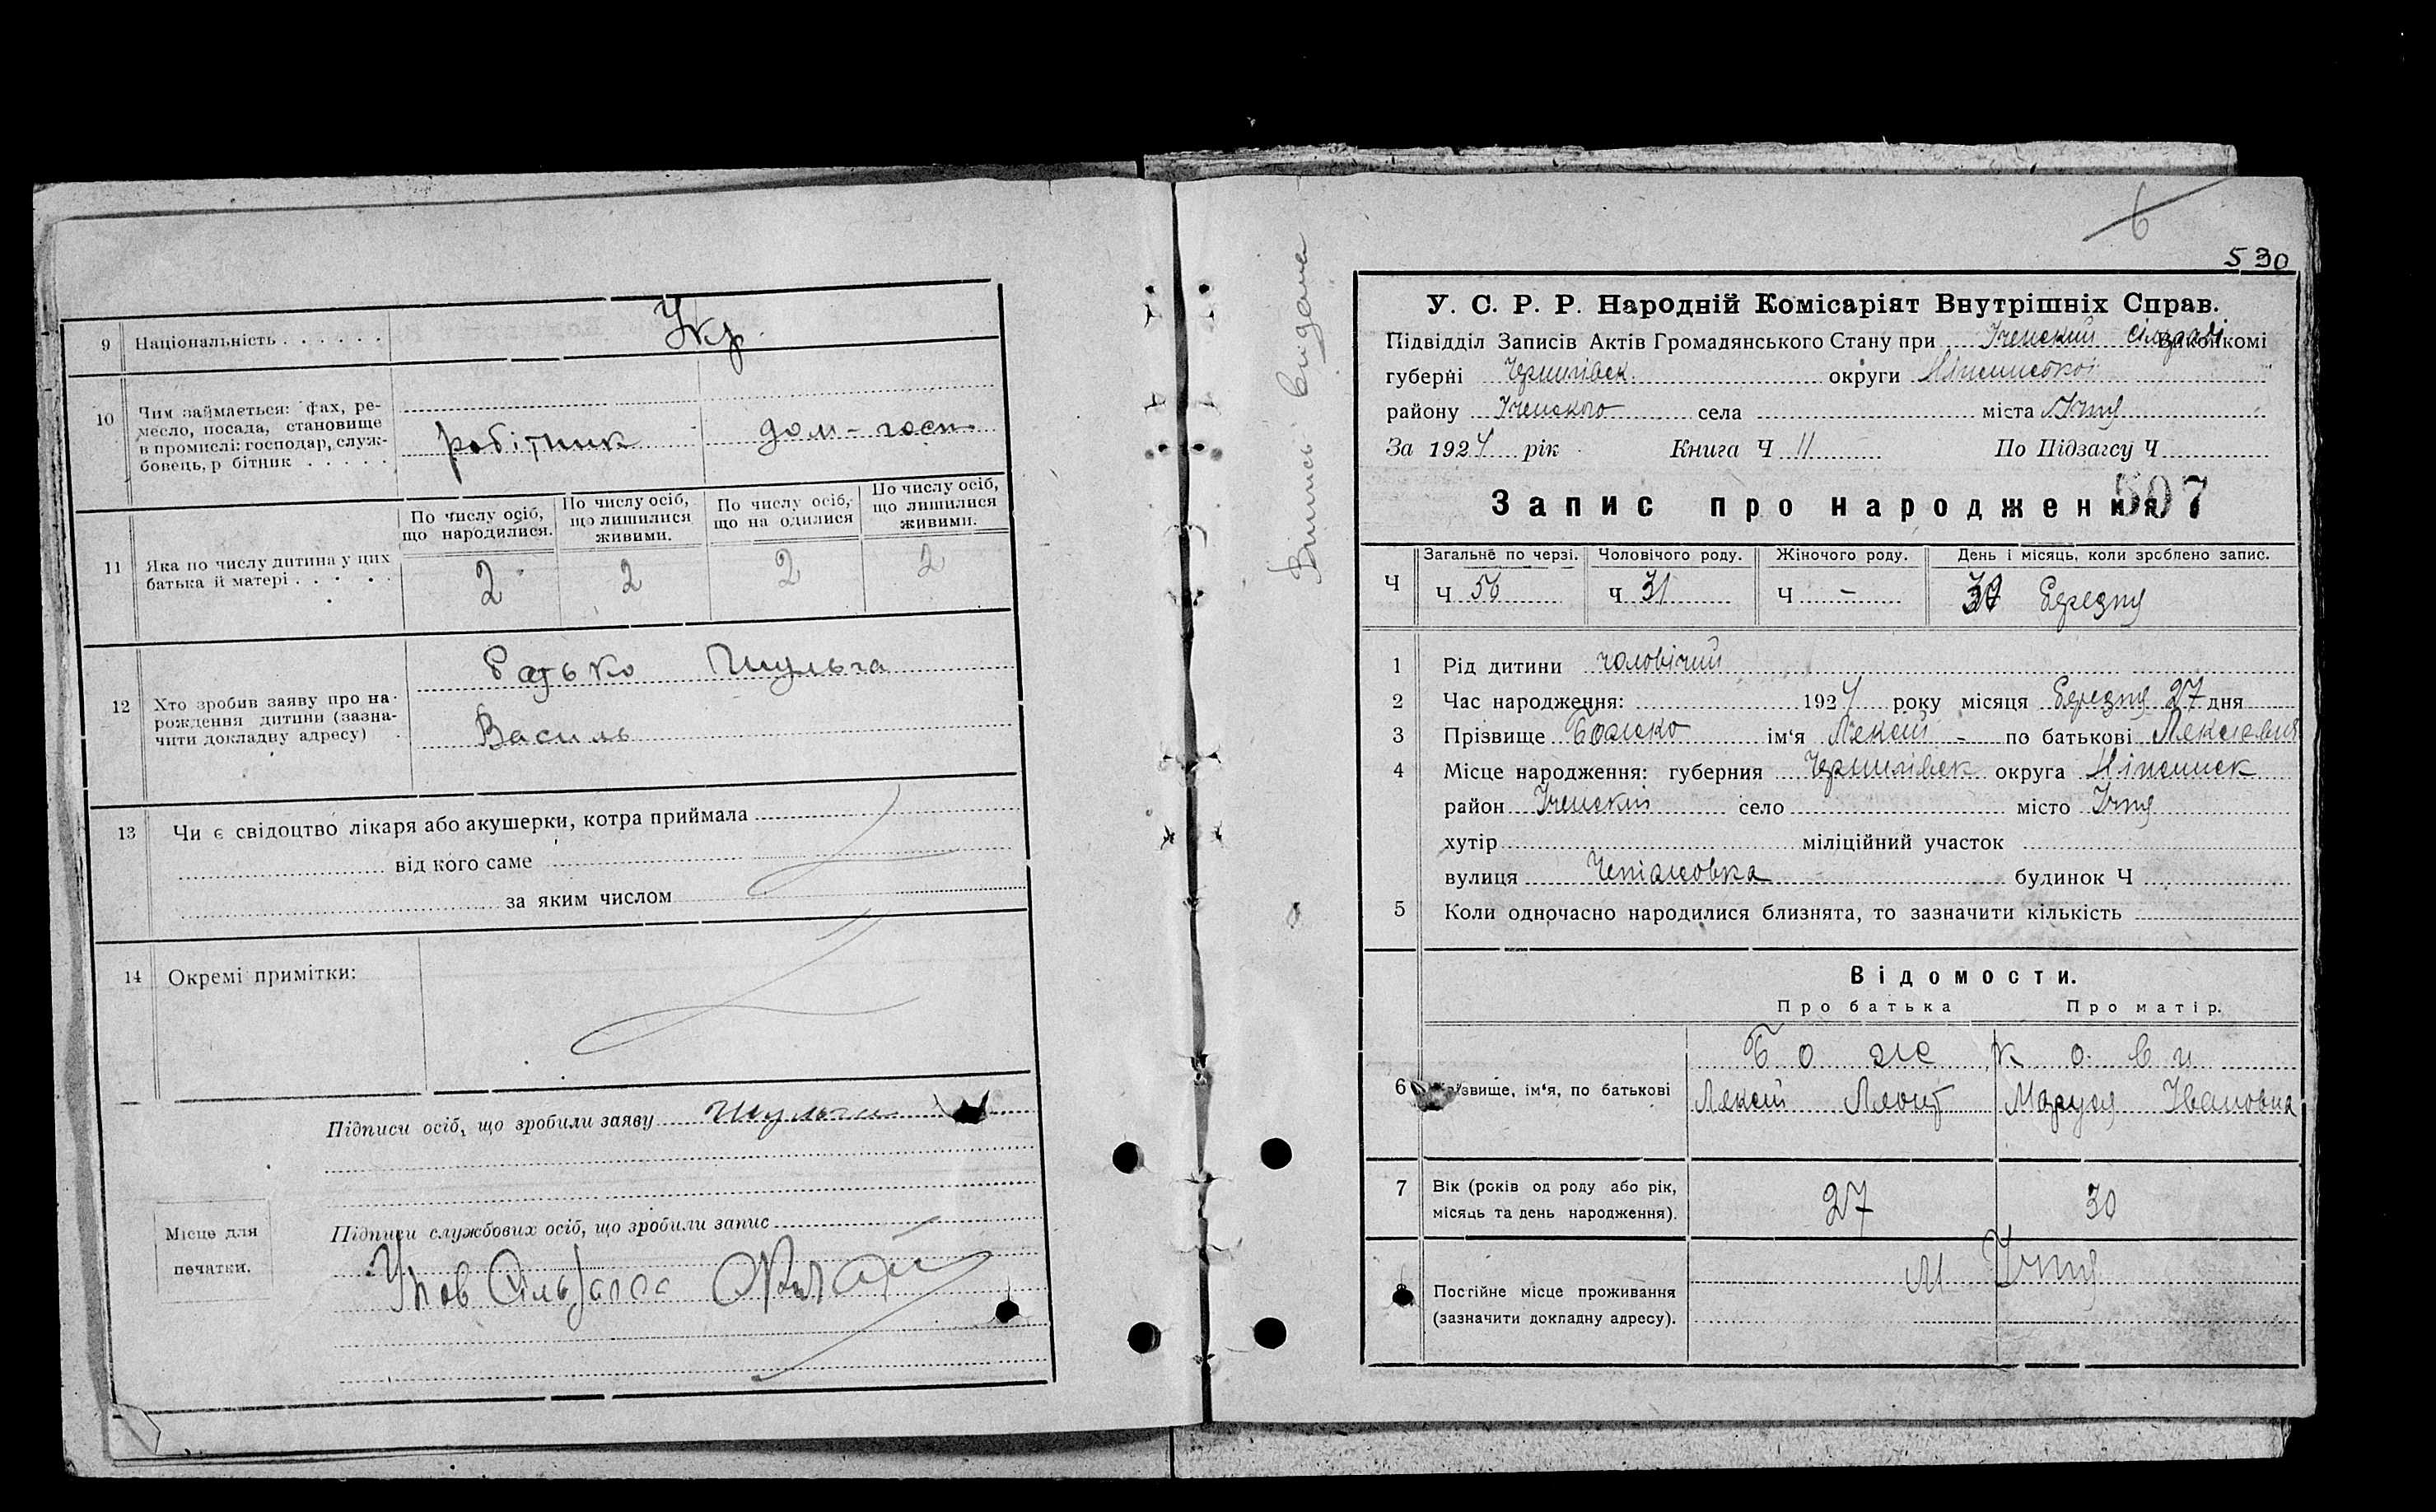 9 Національність . . . . . . Укр.
10 Чим займається: фах, ре-
месло, посада, становище
в промислі: господар, служ-
бовець, р бітник . . . . .
робітник дом-госп.
11 Яка по числу дитина у цих
батька й матері . . . . .
По числу осіб,
що народилися.
По числу осіб,
що лишилися
живими.
По числу осіб,
що на одилися
По числу осіб,
що лишилися
живими.
2 2 2 2
12 Хто зробив заяву про на-
рождення дитини (зазна-
чити докладну адресу)
батько Шульга
Василь
13 Чи є свідоцтво лікаря або акушерки, котра приймала
від кого саме
за яким числом
14 Окремі примітки:
Підписи осіб, що зробили заяву Шульга
Підписи службових осіб, що зробили запис
Місце для
печатки.
Упов Сільзагса
Випись видана
6
530
У. С. Р. Р. Народній Комісаріят Внутрішніх Справ.
Підвідділ Записів Актів Громадянського Стану при Іченский сілраді виконкомі
губерні Чернигівск. округи Ніжинської
району Іченского села міста Ічня
За 1924 рік Книга Ч 11 По Підзагсу Ч
Запис про народження 507
Ч
Загальне по черзі. Чоловічого роду. Жіночого роду. День і місяць, коли зроблено запис.
Ч 56 Ч 31 Ч – Березня
1 Рід дитини чоловічий
2 Час народження: 1924 року місяця Березня 27 дня
3 Прізвище Божко ім‘я Лексій - по батькові Лексієвич
4 Місце народження: губерния Чернигівск округа Ніжинск
район Іченский село місто Ічня
хутір міліційний участок
вулиця будинок Ч
5 Коли одночасно народилися близнята, то зазначити кількість
Відомости.
Про батька Про матір.
6 Прізвище, ім‘я, по батькові
Божкови
Лексій Леонт Маруся Івановна
7 Вік (років од роду або рік,
місяць та день народження).
27 30
8 Постійне місце проживання
(зазначити докладну адресу).
м Ічня